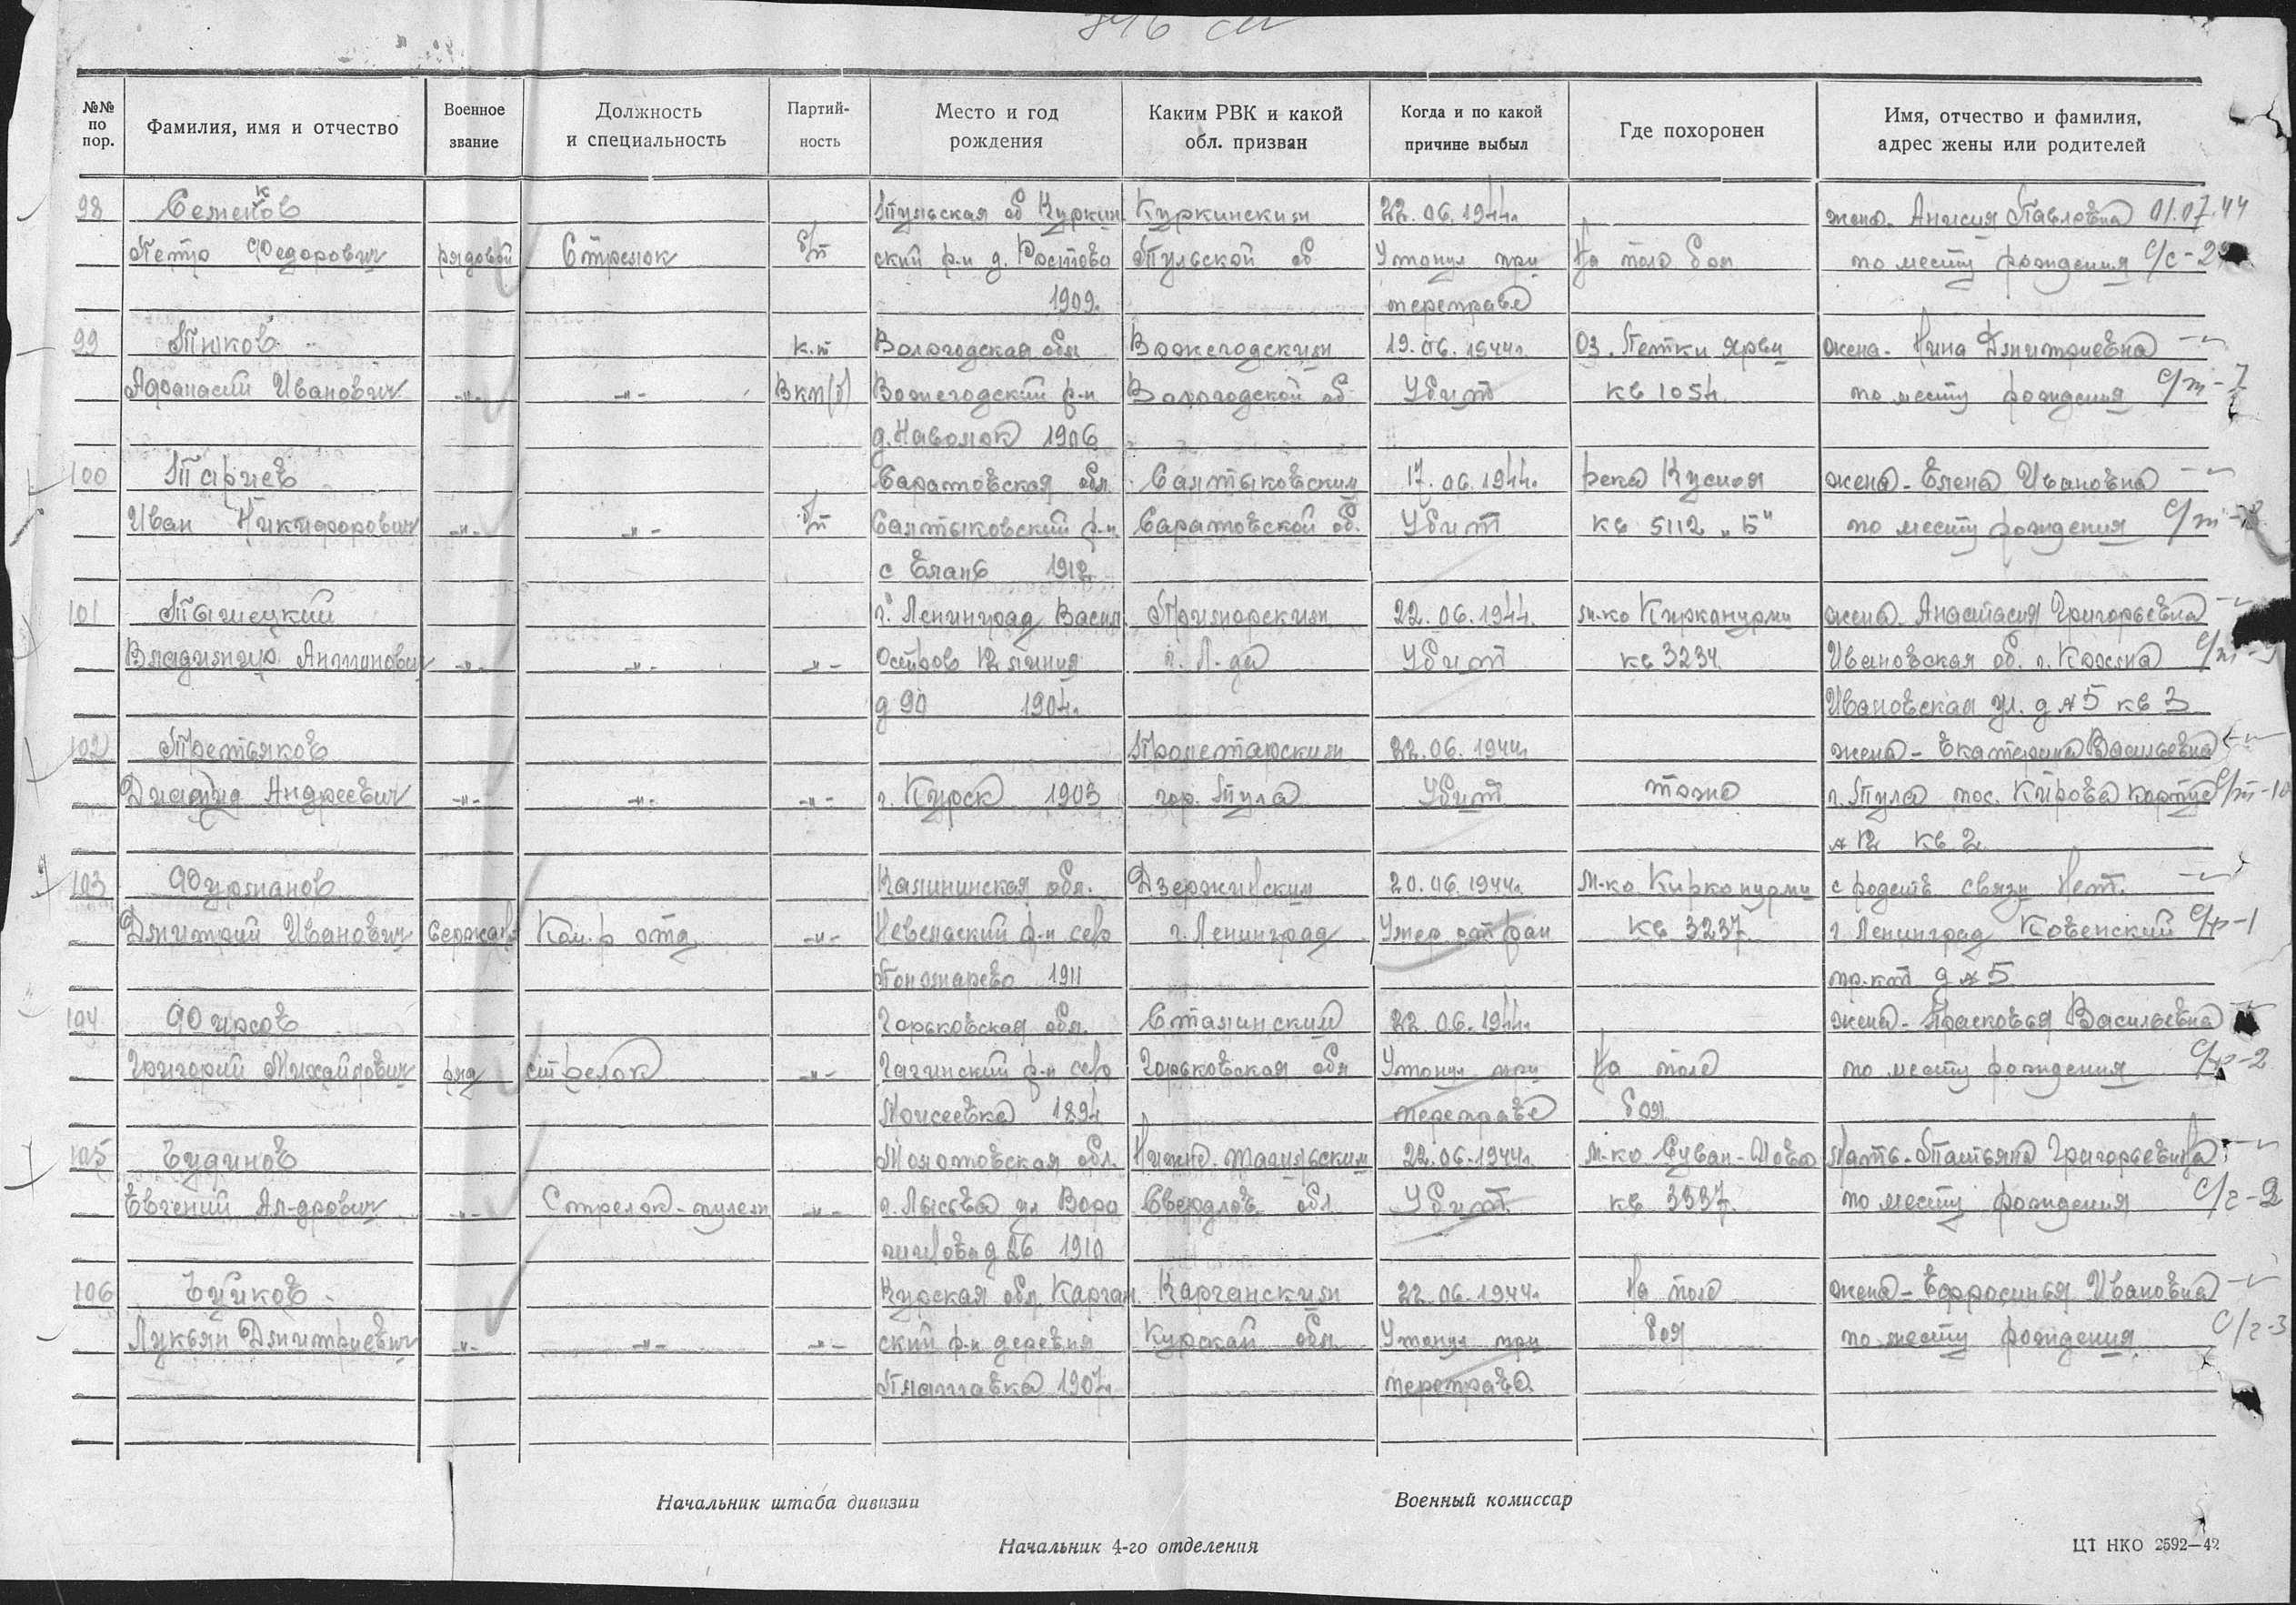 №№ по пор. | Фамилия, имя и отчество | Военное звание | Должность и специальность | Партий-ность | Место и год рождения | Каким РВК и какой обл. призван | Когда и по какой причине выбыл | Где похоронен | Имя, отчество и фамилия, адрес жены или родителей
98 Семенков Тульская об Куркин Куркинским 22.06.1944г. жена. Анисия Павловна 01.07.44
Петр Федорович рядовой Стрелок б/п ский р-н д. Ростово Тульской об Утонул при На поле боя по месту рождения
1909. переправе
99 к.т Вологодская обл Вожегодским 19.06.1944г. Оз. Петки Ярви жена. Нина Дмитриевна
Афанасий Иванович -"- -"- ВКП(б) Вожегодский р-н Вологодской об Убит кв 1054 по месту рождения с/т-7
д. Наволок 1906
100 Саратовская обл. Салтыковским 17.06.1944г. река жена - Елена Ивановна
Иван Никифорович -"- -"- б/п Салтыковский р-н. Саратовской об. Убит кв 5112 „Б" по месту рождения
с Елань 1912
101 г. Ленинград Васил. Приморским 22.06.1944. м-ко жена. Анастасия Григорьевна
Владимир Антонович -"- -"- -"- Остров 12 линия г. Л-да Убит кв 3234 Ивановская об. г. Кохма с/т-9
д 90 1904. Ивановская ул. д №5 кв 3
102 Третьяков Пролетарским 22.06.1944г. жена - Екатерина Васильевна
Андреевич -"- -"- -"- г. Курск 1903 гор. Тула Убит тоже г. Тула пос. Кирова с/т-10
№12 кв. 2
103 Фурманов Калининская обл. Дзержинским 20.06.1944г. м-ко с родств связи нет.
Дмитрий Иванович Сержант Ком.р отд -"- Невельский р-н село г. Ленинград Умер от ран кв 3237 г Ленинград Ковенский с/ф-1
Пономарево 1911 пр.кт д №5
104 Фирсов Горьковская обл. Сталинский 22.06.1944. жена - Прасковья Васильевна
Григорий Михайлович ряд стрелок -"- Гагинский р-н село Горьковская обл Утонул при На поле по месту рождения с/ф-2
Моисеевка 1894 переправе боя
105 Чудинов Молотовская обл. Нижне.Тагильским 22.06.1944г. м-ко Мать - Татьяна Григорьевна
Евгений Ал-дрович -"- Стрелок-пулем -"- г. Лысьва ул Воро Свердлов. обл Убит кв 3337 по месту рождения с/г-2
шилова д 26 1910
106 Чуйков Курская обл. 22.06.1944г На поле жена - Ефросинья Ивановна
Лукьян Дмитриевич -"- -"- -"- ский р-н деревня Курской обл Утонул при боя по месту рождения с/г-3
1907 переправе
Начальник штаба дивизии Военный комиссар
Начальник 4-го отделения ЦТ НКО 2592—42